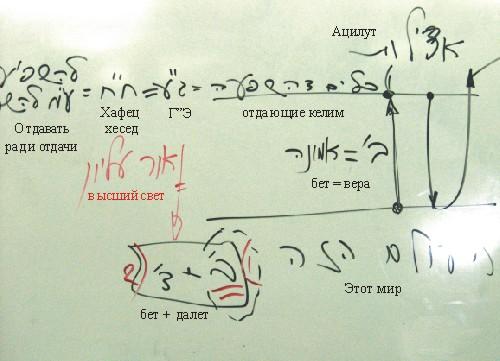 Ацилут
אצילות
להשפיע
ע"מ להש = ח"ח = ג"ע = כלים דהשפעה
Отдавать ради отдачи
Хафец хесед
Г"Э
отдающие келим
ב' = אמונה
бет = вера
אור עליון
высший свет
העולם הזה
Этот мир
ב' + ד'
бет + далет